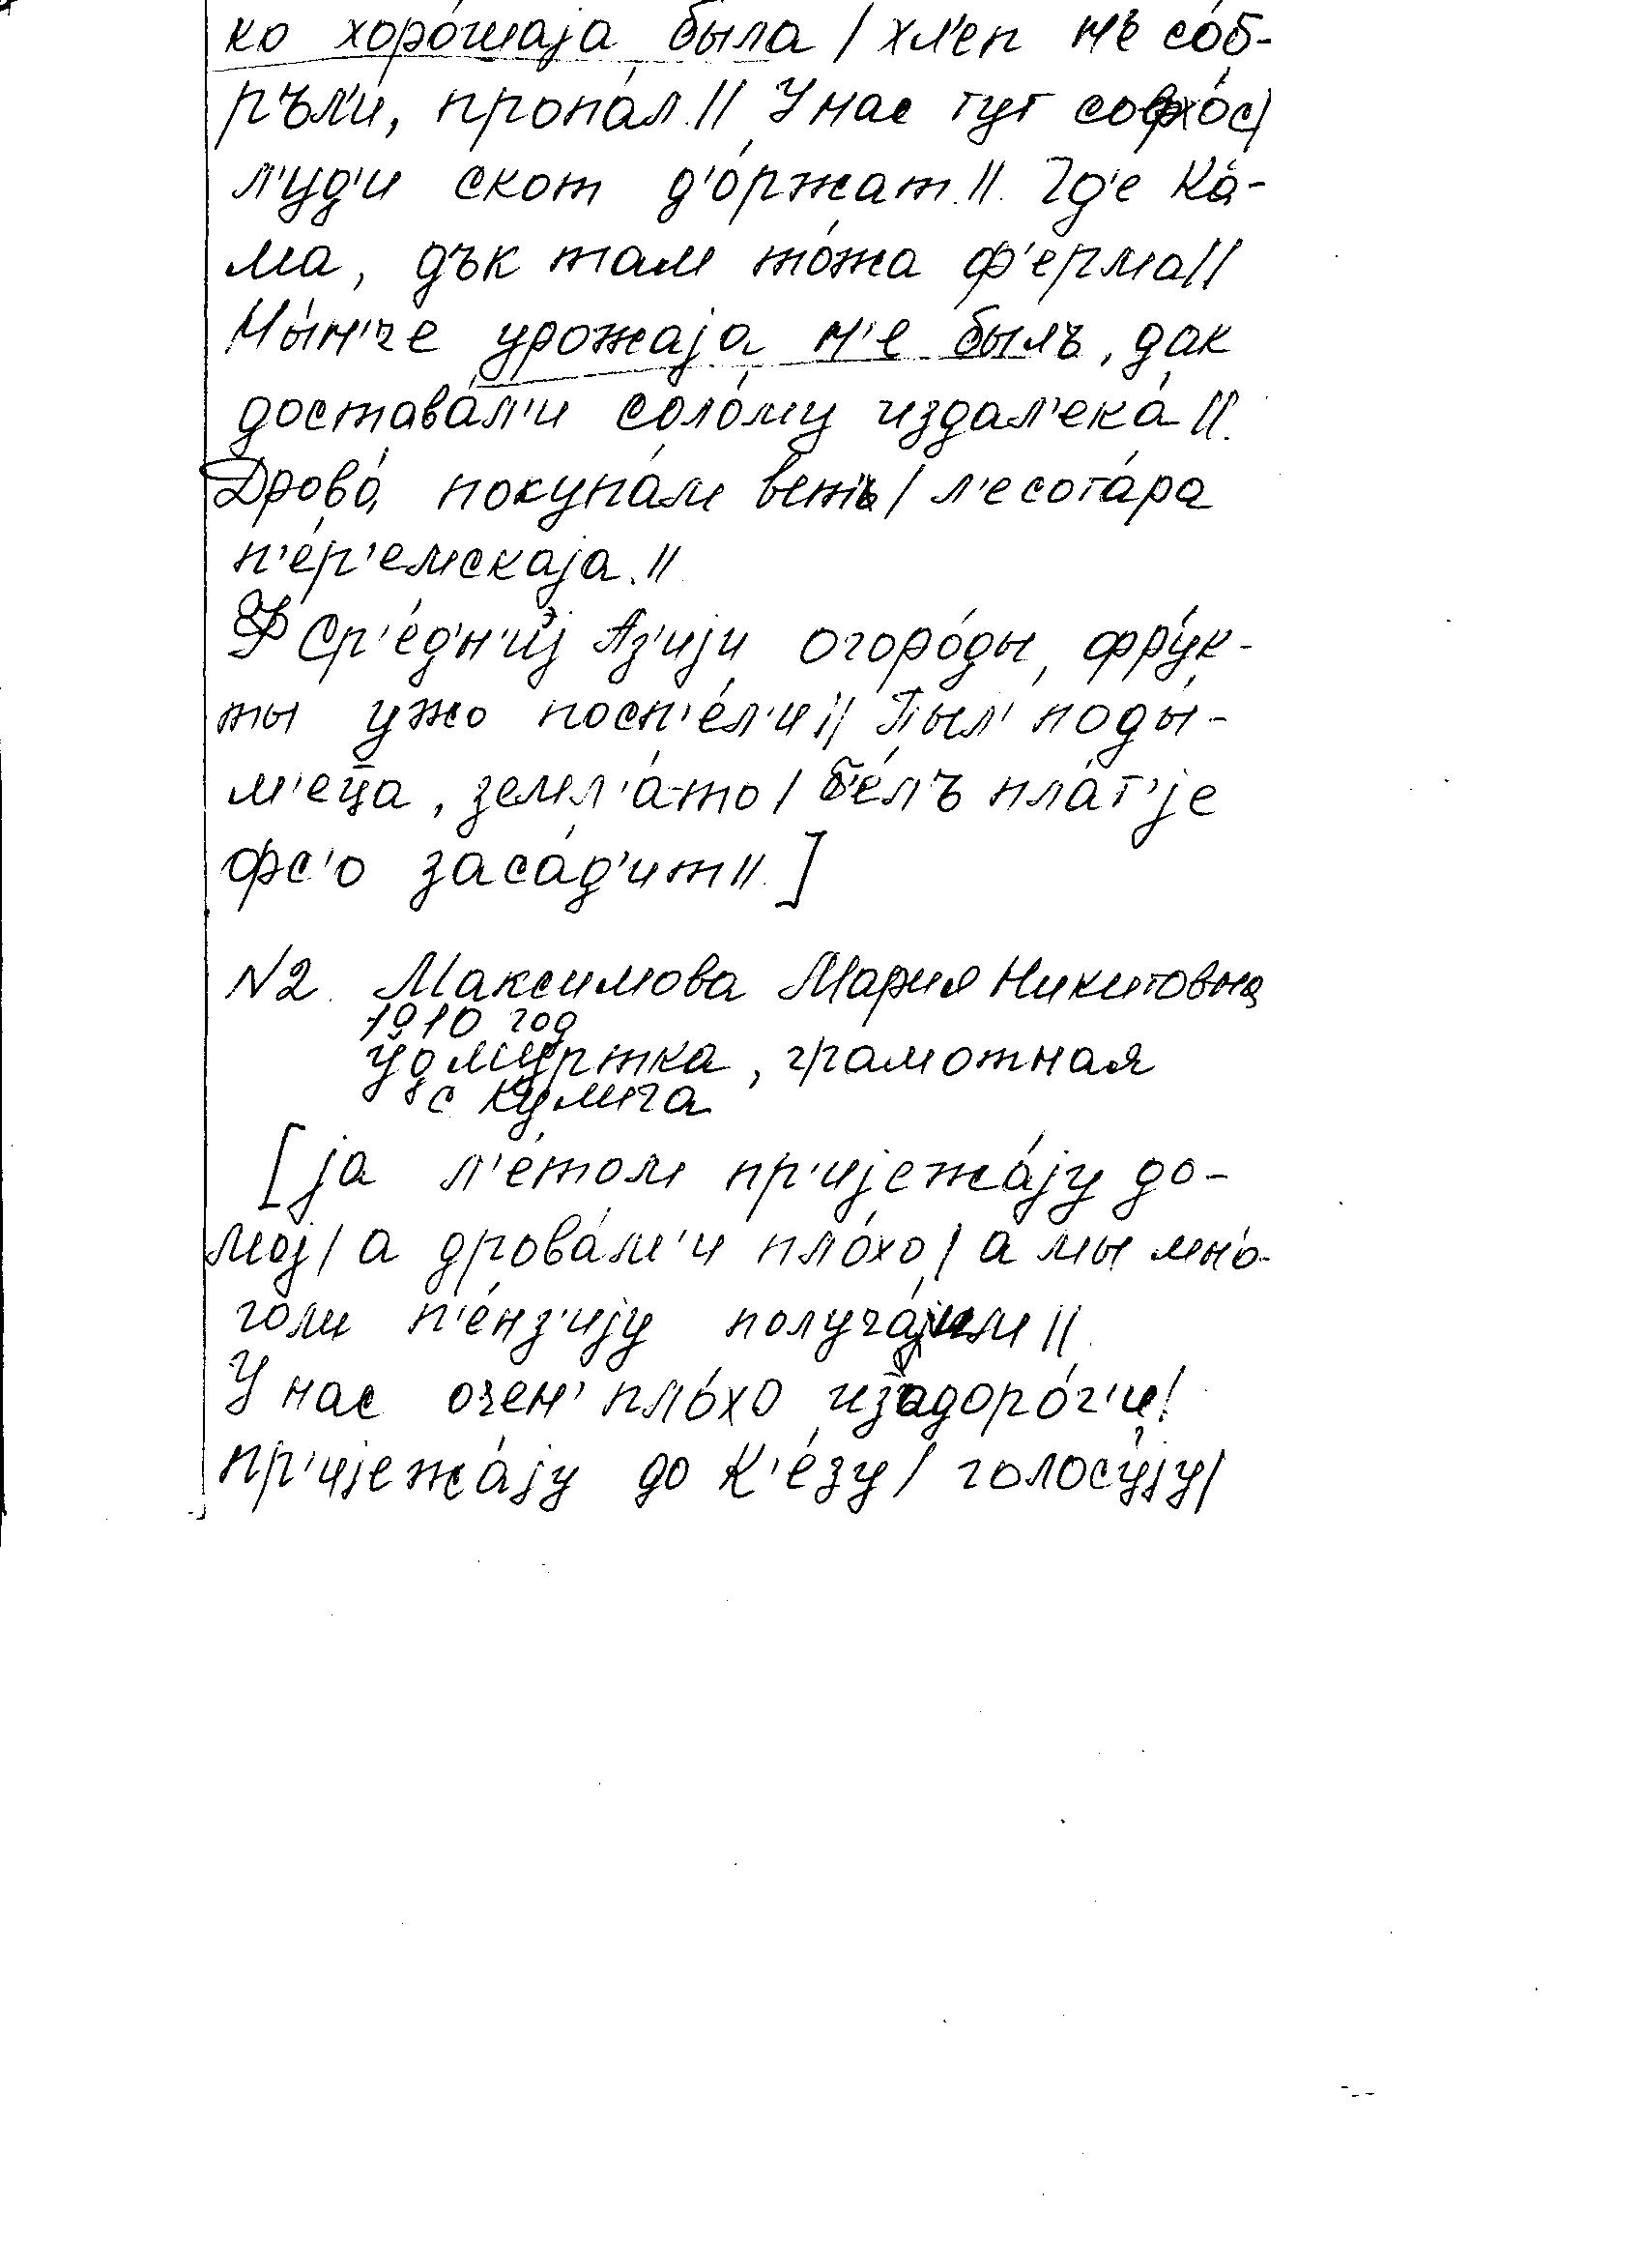 ко хоро́шаjа была / хл'еп нъ со́б-
ръл'и, пропа́л // У нас тут совхо́с/
л'уд'и скот д'о́ржат // Гд'е Ка́-
ма, дък там то́жа ф'ерма //
Ны́н'че урожаjа н'е былъ, дак
достава́л'и соло́му издал'ека́ //
Дрова́ покупа́ли / л'есота́ра
п'е́р'емскаjа. //
Ф Ср'е́дн'иj Аз'иjи огоро́ды, фру́к-
ты ужо посп'е́л'и // Пыл' поды́-
м'еца, земл'а́-то / б'е́лъ пла́т'jе
фс'о заса́д'ит //. ]
N2. Максимова Мария Никитовна
1910 год
удмуртка, грамотная
с Кулига
[ jа л'е́том пр'иjежа́jу до-
моj / а дрова́м'и пло́хо / а мы мно́-
голи п'е́нз'иjу //
У нас очен' пло́хо изадоро́г'и!
пр'иjежа́jу до К'е́зу / голосу́jу /